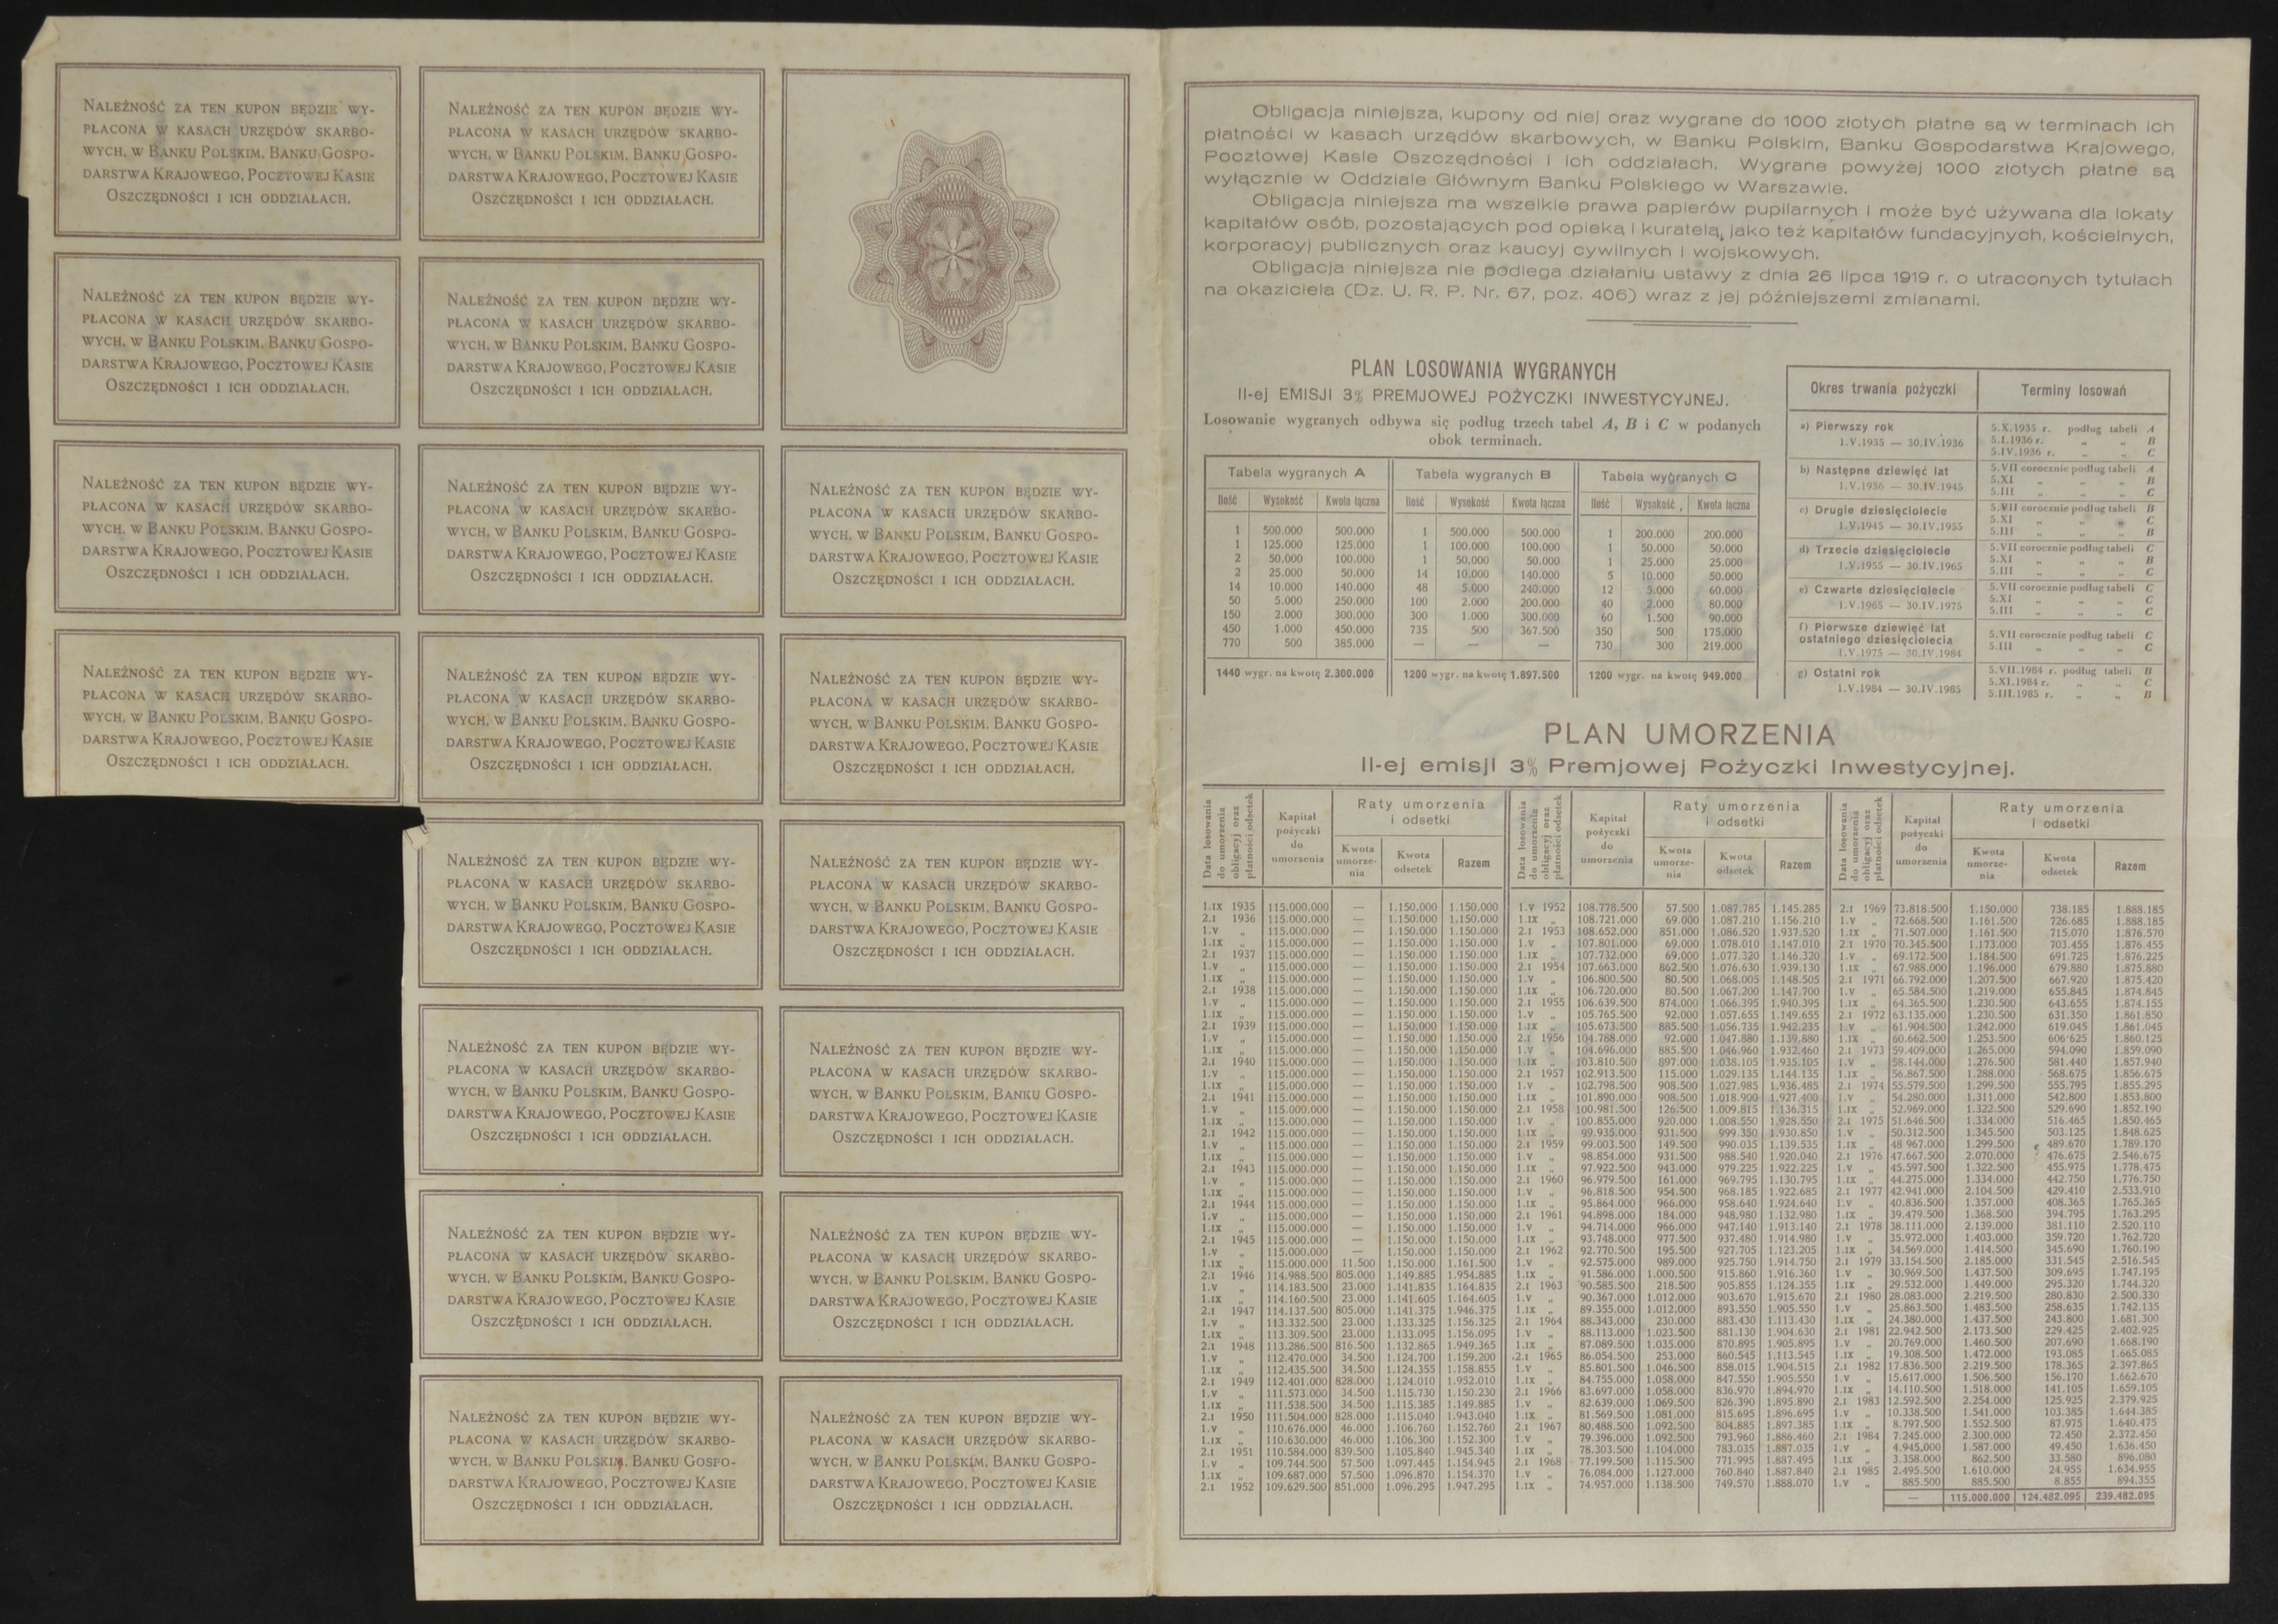 NALEŻNOŚĆ ZA TEN KUPON BĘDZIE WY-
PŁACONA W KASACH URZĘDÓW SKARBO-
WYCH, W BANKU POLSKIM, BANKU GOSPO-
DARSTWA KRAJOWEGO, POCZTOWEJ KASIE
OSZCZĘDNOŚCI I ICH ODDZIAŁACH.
NALEŻNOŚĆ ZA TEN KUPON BĘDZIE WY-
PŁACONA W KASACH URZĘDÓW SKARBO-
WYCH, W BANKU POLSKIM, BANKU GOSPO-
DARSTWA KRAJOWEGO, POCZTOWEJ KASIE
OSZCZĘDNOŚCI I ICH ODDZIAŁACH.
NALEŻNOŚĆ ZA TEN KUPON BĘDZIE WY-
PŁACONA W KASACH URZĘDÓW SKARBO-
WYCH, W BANKU POLSKIM, BANKU GOSPO-
DARSTWA KRAJOWEGO, POCZTOWEJ KASIE
OSZCZĘDNOŚCI I ICH ODDZIAŁACH.
NALEŻNOŚĆ ZA TEN KUPON BĘDZIE WY-
PŁACONA W KASACH URZĘDÓW SKARBO-
WYCH, W BANKU POLSKIM, BANKU GOSPO-
DARSTWA KRAJOWEGO, POCZTOWEJ KASIE
OSZCZĘDNOŚCI I ICH ODDZIAŁACH.
NALEŻNOŚĆ ZA TEN KUPON BĘDZIE WY-
PŁACONA W KASACH URZĘDÓW SKARBO-
WYCH, W BANKU POLSKIM, BANKU GOSPO-
DARSTWA KRAJOWEGO, POCZTOWEJ KASIE
OSZCZĘDNOŚCI I ICH ODDZIAŁACH.
NALEŻNOŚĆ ZA TEN KUPON BĘDZIE WY-
PŁACONA W KASACH URZĘDÓW SKARBO-
WYCH, W BANKU POLSKIM, BANKU GOSPO-
DARSTWA KRAJOWEGO, POCZTOWEJ KASIE
OSZCZĘDNOŚCI I ICH ODDZIAŁACH.
NALEŻNOŚĆ ZA TEN KUPON BĘDZIE WY-
PŁACONA W KASACH URZĘDÓW SKARBO-
WYCH, W BANKU POLSKIM, BANKU GOSPO-
DARSTWA KRAJOWEGO, POCZTOWEJ KASIE
OSZCZĘDNOŚCI I ICH ODDZIAŁACH.
NALEŻNOŚĆ ZA TEN KUPON BĘDZIE WY-
PŁACONA W KASACH URZĘDÓW SKARBO-
WYCH, W BANKU POLSKIM, BANKU GOSPO-
DARSTWA KRAJOWEGO, POCZTOWEJ KASIE
OSZCZĘDNOŚCI I ICH ODDZIAŁACH.
NALEŻNOŚĆ ZA TEN KUPON BĘDZIE WY-
PŁACONA W KASACH URZĘDÓW SKARBO-
WYCH, W BANKU POLSKIM, BANKU GOSPO-
DARSTWA KRAJOWEGO, POCZTOWEJ KASIE
OSZCZĘDNOŚCI I ICH ODDZIAŁACH.
NALEŻNOŚĆ ZA TEN KUPON BĘDZIE WY-
PŁACONA W KASACH URZĘDÓW SKARBO-
WYCH, W BANKU POLSKIM, BANKU GOSPO-
DARSTWA KRAJOWEGO, POCZTOWEJ KASIE
OSZCZĘDNOŚCI I ICH ODDZIAŁACH.
NALEŻNOŚĆ ZA TEN KUPON BĘDZIE WY-
PŁACONA W KASACH URZĘDÓW SKARBO-
WYCH, W BANKU POLSKIM, BANKU GOSPO-
DARSTWA KRAJOWEGO, POCZTOWEJ KASIE
OSZCZĘDNOŚCI I ICH ODDZIAŁACH.
NALEŻNOŚĆ ZA TEN KUPON BĘDZIE WY-
PŁACONA W KASACH URZĘDÓW SKARBO-
WYCH, W BANKU POLSKIM, BANKU GOSPO-
DARSTWA KRAJOWEGO, POCZTOWEJ KASIE
OSZCZĘDNOŚCI I ICH ODDZIAŁACH.
NALEŻNOŚĆ ZA TEN KUPON BĘDZIE WY-
PŁACONA W KASACH URZĘDÓW SKARBO-
WYCH, W BANKU POLSKIM, BANKU GOSPO-
DARSTWA KRAJOWEGO, POCZTOWEJ KASIE
OSZCZĘDNOŚCI I ICH ODDZIAŁACH.
NALEŻNOŚĆ ZA TEN KUPON BĘDZIE WY-
PŁACONA W KASACH URZĘDÓW SKARBO-
WYCH, W BANKU POLSKIM, BANKU GOSPO-
DARSTWA KRAJOWEGO, POCZTOWEJ KASIE
OSZCZĘDNOŚCI I ICH ODDZIAŁACH.
NALEŻNOŚĆ ZA TEN KUPON BĘDZIE WY-
PŁACONA W KASACH URZĘDÓW SKARBO-
WYCH, W BANKU POLSKIM, BANKU GOSPO-
DARSTWA KRAJOWEGO, POCZTOWEJ KASIE
OSZCZĘDNOŚCI I ICH ODDZIAŁACH.
NALEŻNOŚĆ ZA TEN KUPON BĘDZIE WY-
PŁACONA W KASACH URZĘDÓW SKARBO-
WYCH, W BANKU POLSKIM, BANKU GOSPO-
DARSTWA KRAJOWEGO, POCZTOWEJ KASIE
OSZCZĘDNOŚCI I ICH ODDZIAŁACH.
NALEŻNOŚĆ ZA TEN KUPON BĘDZIE WY-
PŁACONA W KASACH URZĘDÓW SKARBO-
WYCH, W BANKU POLSKIM, BANKU GOSPO-
DARSTWA KRAJOWEGO, POCZTOWEJ KASIE
OSZCZĘDNOŚCI I ICH ODDZIAŁACH.
NALEŻNOŚĆ ZA TEN KUPON BĘDZIE WY-
PŁACONA W KASACH URZĘDÓW SKARBO-
WYCH, W BANKU POLSKIM, BANKU GOSPO-
DARSTWA KRAJOWEGO, POCZTOWEJ KASIE
OSZCZĘDNOŚCI I ICH ODDZIAŁACH.
Obligacja niniejsza, kupony od niej oraz wygrane do 1000 złotych płatne są w terminach ich
płatności w kasach urzędów skarbowych, w Banku Polskim, Banku Gospodarstwa Krajowego,
Pocztowej Kasie Oszczędności i ich oddziałach. Wygrane powyżej 1000 złotych płatne są
wyłącznie w Oddziale Głównym Banku Polskiego w Warszawie.
Obligacja niniejsza ma wszelkie prawa papierów pupilarnych i może być używana dla lokaty
kapitałów osób, pozostających pod opieką i kuratelą, jako też kapitałów fundacyjnych, kościelnych,
korporacyj publicznych oraz kaucyj cywilnych i wojskowych.
Obligacja niniejsza nie podlega działaniu ustawy z dnia 26 lipca 1919 r. o utraconych tytułach
na okaziciela (Dz. U. R. P. Nr. 67, poz. 406) wraz z jej późniejszemi zmianami.
PLAN LOSOWANIA WYGRANYCH
II-ej EMISJI 3% PREMJOWEJ POŻYCZKI INWESTYCYJNEJ.
Losowanie wygranych odbywa się podług trzech tabel A, B i C w podanych
obok terminach.
Tabela wygranych A Tabela wygranych B Tabela wygranych C
Ilość Wysokość Kwota łączna Ilość Wysokość Kwota łączna Ilość Wysokość Kwota łączna
1 500.000 500.000 1 500.000 500.000 1 200.000 200.000
1 125.000 125.000 1 100.000 100.000 1 50.000 50.000
2 50.000 100.000 1 50.000 50.000 1 25.000 25.000
2 25.000 50.000 14 10.000 140.000 5 10.000 50.000
14 10.000 140.000 48 5.000 240.000 12 5.000 60.000
50 5.000 250.000 100 2.000 200.000 40 2.000 80.000
150 2.000 300.000 300 1.000 300.000 60 1.500 90.000
450 1.000 450.000 735 500 367.500 350 500 175.000
770 500 385.000 — — — 730 300 219.000
1440 wygr. na kwotę 2.300.000 1200 wygr. na kwotę 1.897.500 1200 wygr. na kwotę 949.000
Okres trwania pożyczki Terminy losowań
a) Pierwszy rok 5.X.1935 r. podług tabeli A
1.V.1935 — 30.IV.1936 5.I.1936 r. „ „ B
5.IV.1936 r. „ „ C
b) Następne dziewięć lat 5.VII corocznie podług tabeli A
1.V.1936 — 30.IV.1945 5.XI „ „ „ B
5.III „ „ „ C
c) Drugie dziesięciolecie 5.VII corocznie podług tabeli B
1.V.1945 — 30.IV.1955 5.XI „ „ „ C
5.III „ „ „ B
d) Trzecie dziesięciolecie 5.VII corocznie podług tabeli C
1.V.1955 — 30.IV.1965 5.XI „ „ „ B
5.III „ „ „ C
e) Czwarte dziesięciolecie 5.VII corocznie podług tabeli C
1.V.1965 — 30.IV.1975 5.XI „ „ „ C
5.III „ „ „ C
f) Pierwsze dziewięć lat
ostatniego dziesięciolecia 5.VII corocznie podług tabeli C
1.V.1975 — 30.IV.1984 5.III „ „ „ C
g) Ostatni rok 5.VII.1984 r. podług tabeli B
1.V.1984 — 30.IV.1985 5.XI.1984 r. „ „ C
5.III.1985 r. „ „ B
PLAN UMORZENIA
II-ej emisji 3% Premjowej Pożyczki Inwestycyjnej.
Data losowania do umorzenia obligacyj oraz płatności odsetek Kapitał pożyczki do umorzenia Raty umorzenia i odsetki Kwota umorze-nia Kwota odsetek Razem
Data losowania do umorzenia obligacyj oraz płatności odsetek Kapitał pożyczki do umorzenia Raty umorzenia i odsetki Kwota umorze-nia Kwota odsetek Razem
Data losowania do umorzenia obligacyj oraz płatności odsetek Kapitał pożyczki do umorzenia Raty umorzenia i odsetki Kwota umorze-nia Kwota odsetek Razem
1.IX 1935 115.000.000 — 1.150.000 1.150.000 1.V 1952 108.778.500 57.500 1.087.785 1.145.285 2.I 1969 73.818.500 1.150.000 738.185 1.888.185
2.I 1936 115.000.000 — 1.150.000 1.150.000 1.IX „ 108.721.000 69.000 1.087.210 1.156.210 1.V „ 72.668.500 1.161.500 726.685 1.888.185
1.V „ 115.000.000 — 1.150.000 1.150.000 2.I 1953 108.652.000 851.000 1.086.520 1.937.520 1.IX „ 71.507.000 1.161.500 715.070 1.876.570
1.IX „ 115.000.000 — 1.150.000 1.150.000 1.V „ 107.801.000 69.000 1.078.010 1.147.010 2.I 1970 70.345.500 1.173.000 703.455 1.876.455
2.I 1937 115.000.000 — 1.150.000 1.150.000 1.IX „ 107.732.000 69.000 1.077.320 1.146.320 1.V „ 69.172.500 1.184.500 691.725 1.876.225
1.V „ 115.000.000 — 1.150.000 1.150.000 2.I 1954 107.663.000 862.500 1.076.630 1.939.130 1.IX „ 67.988.000 1.196.000 679.880 1.875.880
1.IX „ 115.000.000 — 1.150.000 1.150.000 1.V „ 106.800.500 80.500 1.068.005 1.148.505 2.I 1971 66.792.000 1.207.500 667.920 1.875.420
2.I 1938 115.000.000 — 1.150.000 1.150.000 1.IX „ 106.720.000 80.500 1.067.200 1.147.700 1.V „ 65.584.500 1.219.000 655.845 1.874.845
1.V „ 115.000.000 — 1.150.000 1.150.000 2.I 1955 106.639.500 874.000 1.066.395 1.940.395 1.IX „ 64.365.500 1.230.500 643.655 1.874.155
1.IX „ 115.000.000 — 1.150.000 1.150.000 1.V „ 105.765.500 92.000 1.057.655 1.149.655 2.I 1972 63.135.000 1.230.500 631.350 1.861.850
2.I 1939 115.000.000 — 1.150.000 1.150.000 1.IX „ 105.673.500 885.500 1.056.735 1.942.235 1.V „ 61.904.500 1.242.000 619.045 1.861.045
1.V „ 115.000.000 — 1.150.000 1.150.000 2.I 1956 104.788.000 92.000 1.047.880 1.139.880 1.IX „ 60.662.500 1.253.500 606.625 1.860.125
1.IX „ 115.000.000 — 1.150.000 1.150.000 1.V „ 104.696.000 885.500 1.046.960 1.932.460 2.I 1973 59.409.000 1.265.000 594.090 1.859.090
2.I 1940 115.000.000 — 1.150.000 1.150.000 1.IX „ 103.810.500 897.000 1.038.105 1.935.105 1.V „ 58.144.000 1.276.500 581.440 1.857.940
1.V „ 115.000.000 — 1.150.000 1.150.000 2.I 1957 102.913.500 115.000 1.029.135 1.144.135 1.IX „ 56.867.500 1.288.000 568.675 1.856.675
1.IX „ 115.000.000 — 1.150.000 1.150.000 1.V „ 102.798.500 908.500 1.027.985 1.936.485 2.I 1974 55.579.500 1.299.500 555.795 1.855.295
2.I 1941 115.000.000 — 1.150.000 1.150.000 1.IX „ 101.890.000 908.500 1.018.900 1.927.400 1.V „ 54.280.000 1.311.000 542.800 1.853.800
1.V „ 115.000.000 — 1.150.000 1.150.000 2.I 1958 100.981.500 126.500 1.009.815 1.136.315 1.IX „ 52.969.000 1.322.500 529.690 1.852.190
1.IX „ 115.000.000 — 1.150.000 1.150.000 1.V „ 100.855.000 920.000 1.008.550 1.928.550 2.I 1975 51.646.500 1.334.000 516.465 1.850.465
2.I 1942 115.000.000 — 1.150.000 1.150.000 1.IX „ 99.935.000 931.500 999.350 1.930.850 1.V „ 50.312.500 1.345.500 503.125 1.848.625
1.V „ 115.000.000 — 1.150.000 1.150.000 2.I 1959 99.003.500 149.500 990.035 1.139.535 1.IX „ 48 967.000 1.299.500 489.670 1.789.170
1.IX „ 115.000.000 — 1.150.000 1.150.000 1.V „ 98.854.000 931.500 988.540 1.920.040 2.I 1976 47.667.500 2.070.000 476.675 2.546.675
2.I 1943 115.000.000 — 1.150.000 1.150.000 1.IX „ 97.922.500 943.000 979.225 1.922.225 1.V „ 45.597.500 1.322.500 455.975 1.778.475
1.V „ 115.000.000 — 1.150.000 1.150.000 2.I 1960 96.979.500 161.000 969.795 1.130.795 1.IX „ 44.275.000 1.334.000 442.750 1.776.750
1.IX „ 115.000.000 — 1.150.000 1.150.000 1.V „ 96.818.500 954.500 968.185 1.922.685 2.I 1977 42.941.000 2.104.500 429.410 2.533.910
2.I 1944 115.000.000 — 1.150.000 1.150.000 1.IX „ 95.864.000 966.000 958.640 1.924.640 1.V „ 40.836.500 1.357.000 408.365 1.765.365
1.V „ 115.000.000 — 1.150.000 1.150.000 2.I 1961 94.898.000 184.000 948.980 1.132.980 1.IX „ 39.479.500 1.368.500 394.795 1.763.295
1.IX „ 115.000.000 — 1.150.000 1.150.000 1.V „ 94.714.000 966.000 947.140 1.913.140 2.I 1978 38.111.000 2.139.000 381.110 2.520.110
2.I 1945 115.000.000 — 1.150.000 1.150.000 1.IX „ 93.748.000 977.500 937.480 1.914.980 1.V „ 35.972.000 1.403.000 359.720 1.762.720
1.V „ 115.000.000 — 1.150.000 1.150.000 2.I 1962 92.770.500 195.500 927.705 1.123.205 1.IX „ 34.569.000 1.414.500 345.690 1.760.190
1.IX „ 115.000.000 11.500 1.150.000 1.161.500 1.V „ 92.575.000 989.000 925.750 1.914.750 2.I 1979 33.154.500 2.185.000 331.545 2.516.545
2.I 1946 114.988.500 805.000 1.149.885 1.954.885 1.IX „ 91.586.000 1.000.500 915.860 1.916.360 1.V „ 30.969.500 1.437.500 309.695 1.747.195
1.V „ 114.183.500 23.000 1.141.835 1.164.835 2.I 1963 90.585.500 218.500 905.855 1.124.355 1.IX „ 29.532.000 1.449.000 295.320 1.744.320
1.IX „ 114.160.500 23.000 1.141.605 1.164.605 1.V „ 90.367.000 1.012.000 903.670 1.915.670 2.I 1980 28.083.000 2.219.500 280.830 2.500.330
2.I 1947 114.137.500 805.000 1.141.375 1.946.375 1.IX „ 89.355.000 1.012.000 893.550 1.905.550 1.V „ 25.863.500 1.483.500 258.635 1.742.135
1.V „ 113.332.500 23.000 1.133.325 1.156.325 2.I 1964 88.343.000 230.000 883.430 1.113.430 1.IX „ 24.380.000 1.437.500 243.800 1.681.300
1.IX „ 113.309.500 23.000 1.133.095 1.156.095 1.V „ 88.113.000 1.023.500 881.130 1.904.630 2.I 1981 22.942.500 2.173.500 229.425 2.402.925
2.I 1948 113.286.500 816.500 1.132.865 1.949.365 1.IX „ 87.089.500 1.035.000 870.895 1.905.895 1.V „ 20.769.000 1.460.500 207.690 1.668.190
1.V „ 112.470.000 34.500 1.124.700 1.159.200 2.I 1965 86.054.500 253.000 860.545 1.113.545 1.IX „ 19.308.500 1.472.000 193.085 1.665.085
1.IX „ 112.435.500 34.500 1.124.355 1.158.855 1.V „ 85.801.500 1.046.500 858.015 1.904.515 2.I 1982 17.836.500 2.219.500 178.365 2.397.865
2.I 1949 112.401.000 828.000 1.124.010 1.952.010 1.IX „ 84.755.000 1.058.000 847.550 1.905.550 1.V „ 15.617.000 1.506.500 156.170 1.662.670
1.V „ 111.573.000 34.500 1.115.730 1.150.230 2.I 1966 83.697.000 1.058.000 836.970 1.894.970 1.IX „ 14.110.500 1.518.000 141.105 1.659.105
1.IX „ 111.538.500 34.500 1.115.385 1.149.885 1.V „ 82.639.000 1.069.500 826.390 1.895.890 2.I 1983 12.592.500 2.254.000 125.925 2.379.925
2.I 1950 111.504.000 828.000 1.115.040 1.943.040 1.IX „ 81.569.500 1.081.000 815.695 1.896.695 1.V „ 10.338.500 1.541.000 103.385 1.644.385
1.V „ 110.676.000 46.000 1.106.760 1.152.760 2.I 1967 80.488.500 1.092.500 804.885 1.897.385 1.IX „ 8.797.500 1.552.500 87.975 1.640.475
1.IX „ 110.630.000 46.000 1.106.300 1.152.300 1.V „ 79.396.000 1.092.500 793.960 1.886.460 2.I 1984 7.245.000 2.300.000 72.450 2.372.450
2.I 1951 110.584.000 839.500 1.105.840 1.945.340 1.IX „ 78.303.500 1.104.000 783.035 1.887.035 1.V „ 4.945.000 1.587.000 49.450 1.636.450
1.V „ 109.744.500 57.500 1.097.445 1.154.945 2.I 1968 77.199.500 1.115.500 771.995 1.887.495 1.IX „ 3.358.000 862.500 33.580 896.080
1.IX „ 109.687.000 57.500 1.096.870 1.154.370 1.V „ 76.084.000 1.127.000 760.840 1.887.840 2.I 1985 2.495.500 1.610.000 24.955 1.634.955
2.I 1952 109.629.500 851.000 1.096.295 1.947.295 1.IX „ 74.957.000 1.138.500 749.570 1.888.070 1.V „ 885.500 885.500 8.855 894.355
— 115.000.000 124.482.095 239.482.095